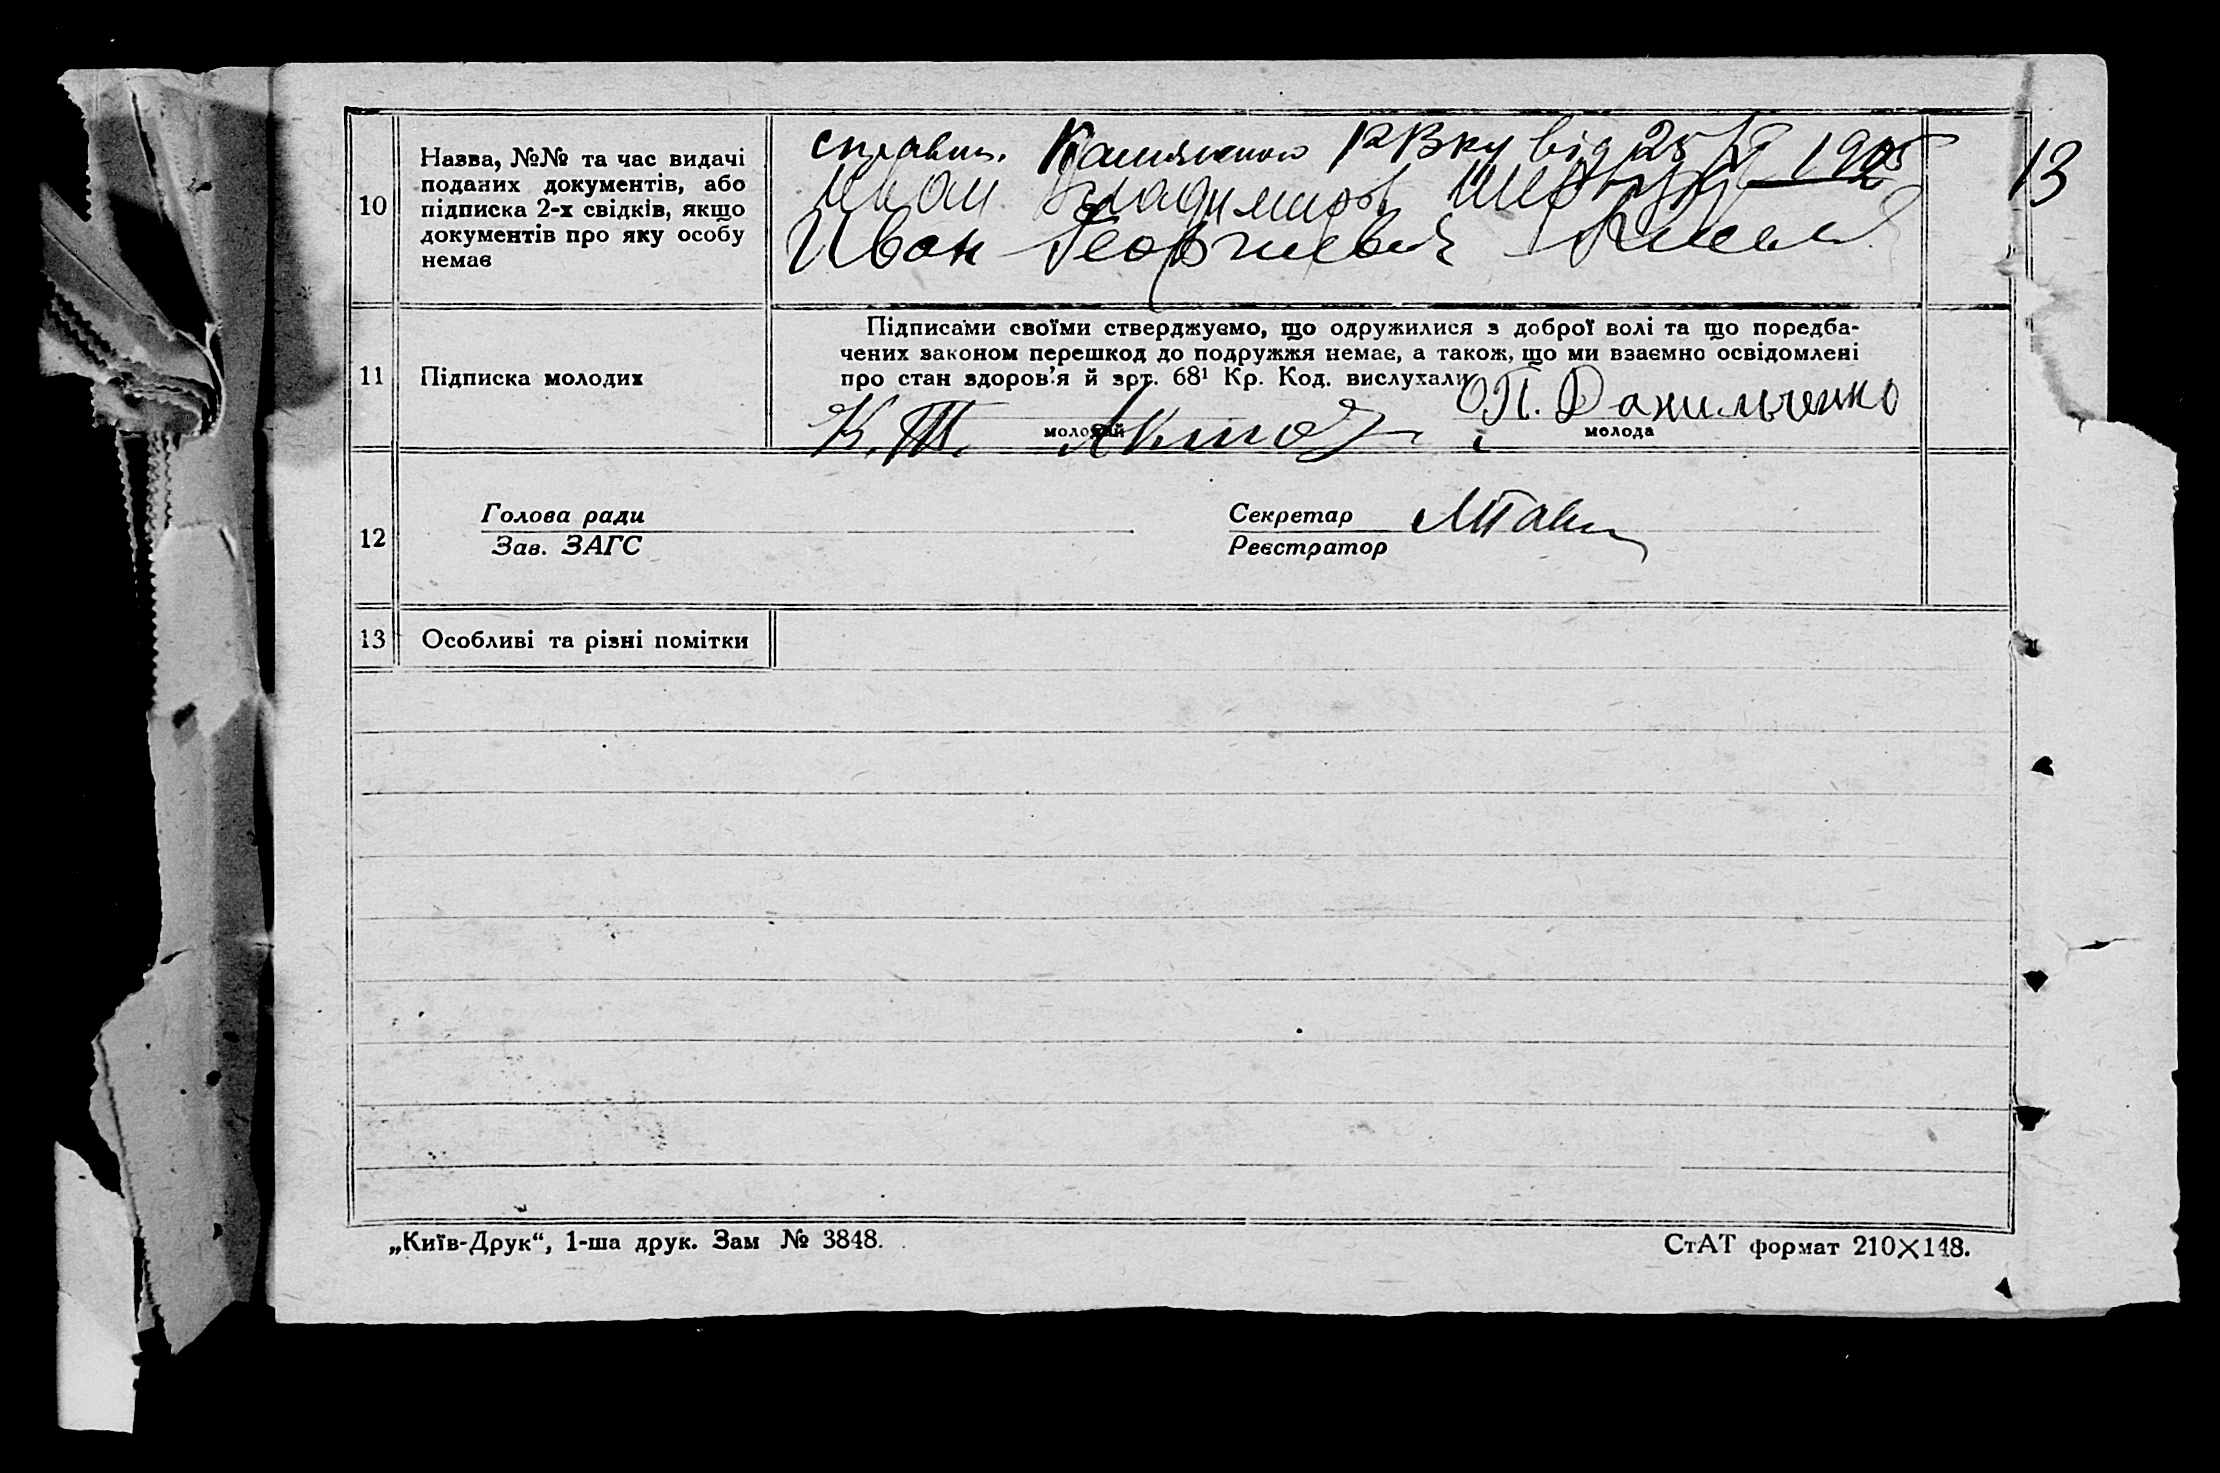 13
10
Назва, №№ та час видачі
поданих документів, або
підписка 2-х свідків, якщо
документів про яку особу
немає
РВку від 25
Иван Владимиров
Иван Георгиевич
11
Підписка молодих
Підписами своїми стверджуємо, що одружилися з доброї волі та що поредба-
чених законом перешкод до подружжя немає, а також, що ми взаємно освідомлені
про стан здоров'я й арт. 68¹ Кр. Код. вислухали
О П. Данильченко
К. Т.
молодий
молода
12
Голова ради
Зав. ЗАГС
Секретар
Реєстратор
13
Особливі та різні помітки
„Київ-Друк“, 1-ша друк. Зам № 3848.
СтАТ формат 210×148.